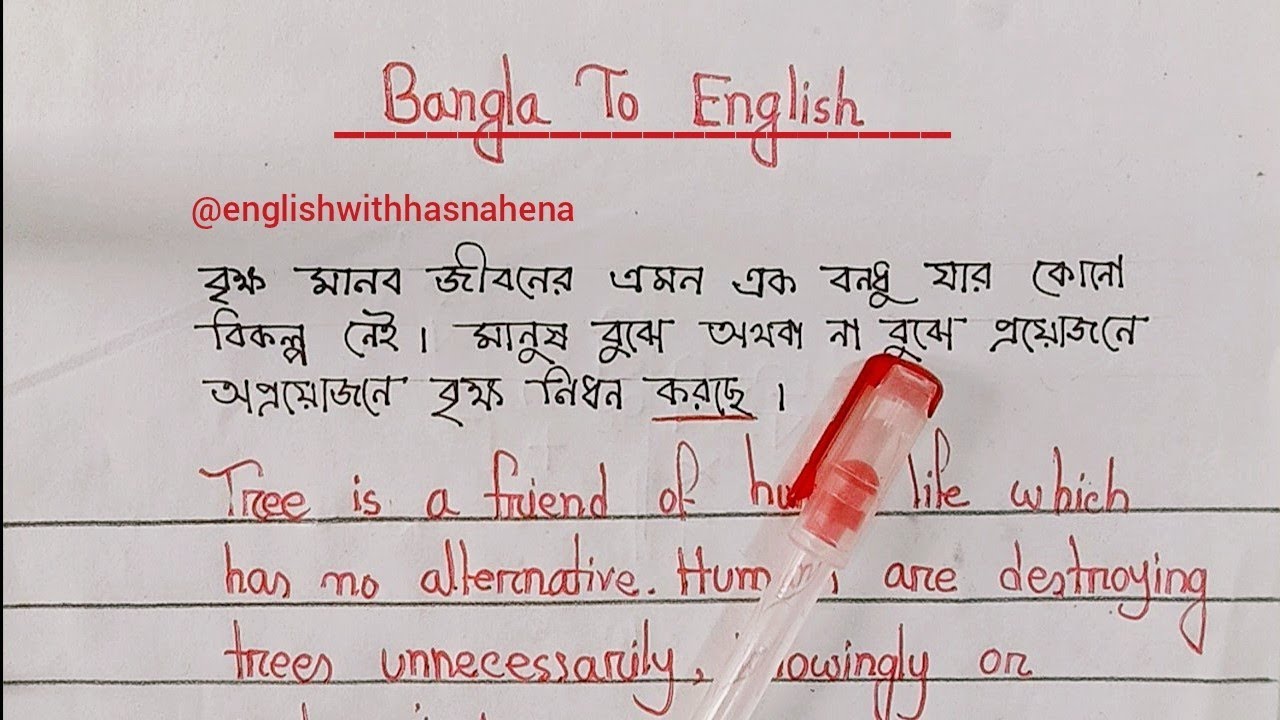 Bangla To English
@englishwithhasnahena
বৃক্ষ মানব জীবনের এমন এক বন্ধু যার কোনো
বিকল্প নেই। মানুষ বুঝে অথবা না বুঝে প্রয়োজনে
অপ্রয়োজনে বৃক্ষ নিধন করছে।
Tree is a friend of life which
has no alternative. are destroying
trees unnecessarily, or